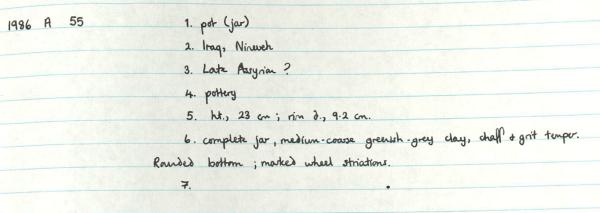 1986 A 55 1. pot (jar)
2. Iraq, Nineveh
3. Late Assyrian ?
4. pottery
5. ht., 23 cm ; rim d., 9.2 cm.
6. complete jar, medium-coarse greenish-grey clay, chaff & grit temper.
Rounded bottom ; marked wheel striations.
7.